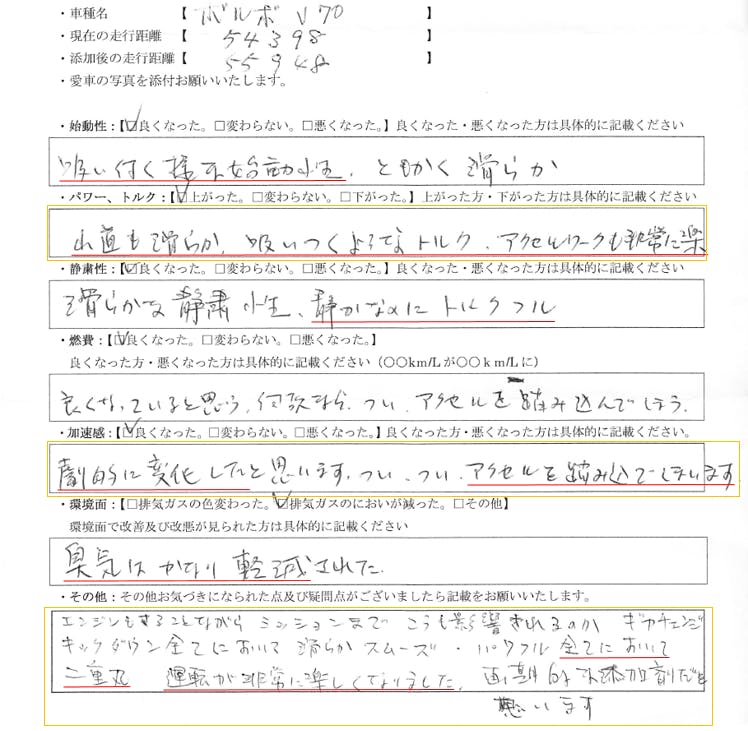 ・車種名 【 ボルボ V70 】
・現在の走行距離 【 54398 】
・添加後の走行距離【 55948 】
・愛車の写真を添付お願いいたします。
・始動性：【☑良くなった。□変わらない。□悪くなった。】良くなった・悪くなった方は具体的に記載ください
吸い付く様な始動性、ともかく滑らか
・パワー、トルク：【☑上がった。□変わらない。□下がった。】上がった方・下がった方は具体的に記載ください
も滑らか、吸いつくようなトルク、アクセルワークも非常に楽
・静粛性：【☑良くなった。□変わらない。□悪くなった。】良くなった・悪くなった方は具体的に記載ください
滑らかな静粛性、静かなのにトルクフル
・燃費：【☑良くなった。□変わらない。□悪くなった。】
良くなった方・悪くなった方は具体的に記載ください（○○km/Lが○○ｋｍ/Lに）
良くなっていると思う、何故なら、つい、アクセルを踏み込んでしまう.
・加速感：【☑良くなった。□変わらない。□悪くなった。】良くなった方・悪くなった方は具体的に記載ください。
劇的に変化したと思います、つい、つい、アクセルを踏み込でしまいます
・環境面：【□排気ガスの色変わった。☑排気ガスのにおいが減った。□その他】
環境面で改善及び改悪が見られた方は具体的に記載ください
臭気はかなり軽減された.
・その他：その他お気づきになられた点及び疑問点がございましたら記載をお願いいたします。
エンジンもさることながら ミッションまで こうも影響されるのか ギヤチェンジ
キックダウン全てにおいて滑らかスムーズ・パワフル全てにおいて
二重丸 運転が非常に楽しくなりました、画期的な添加剤だと
思います